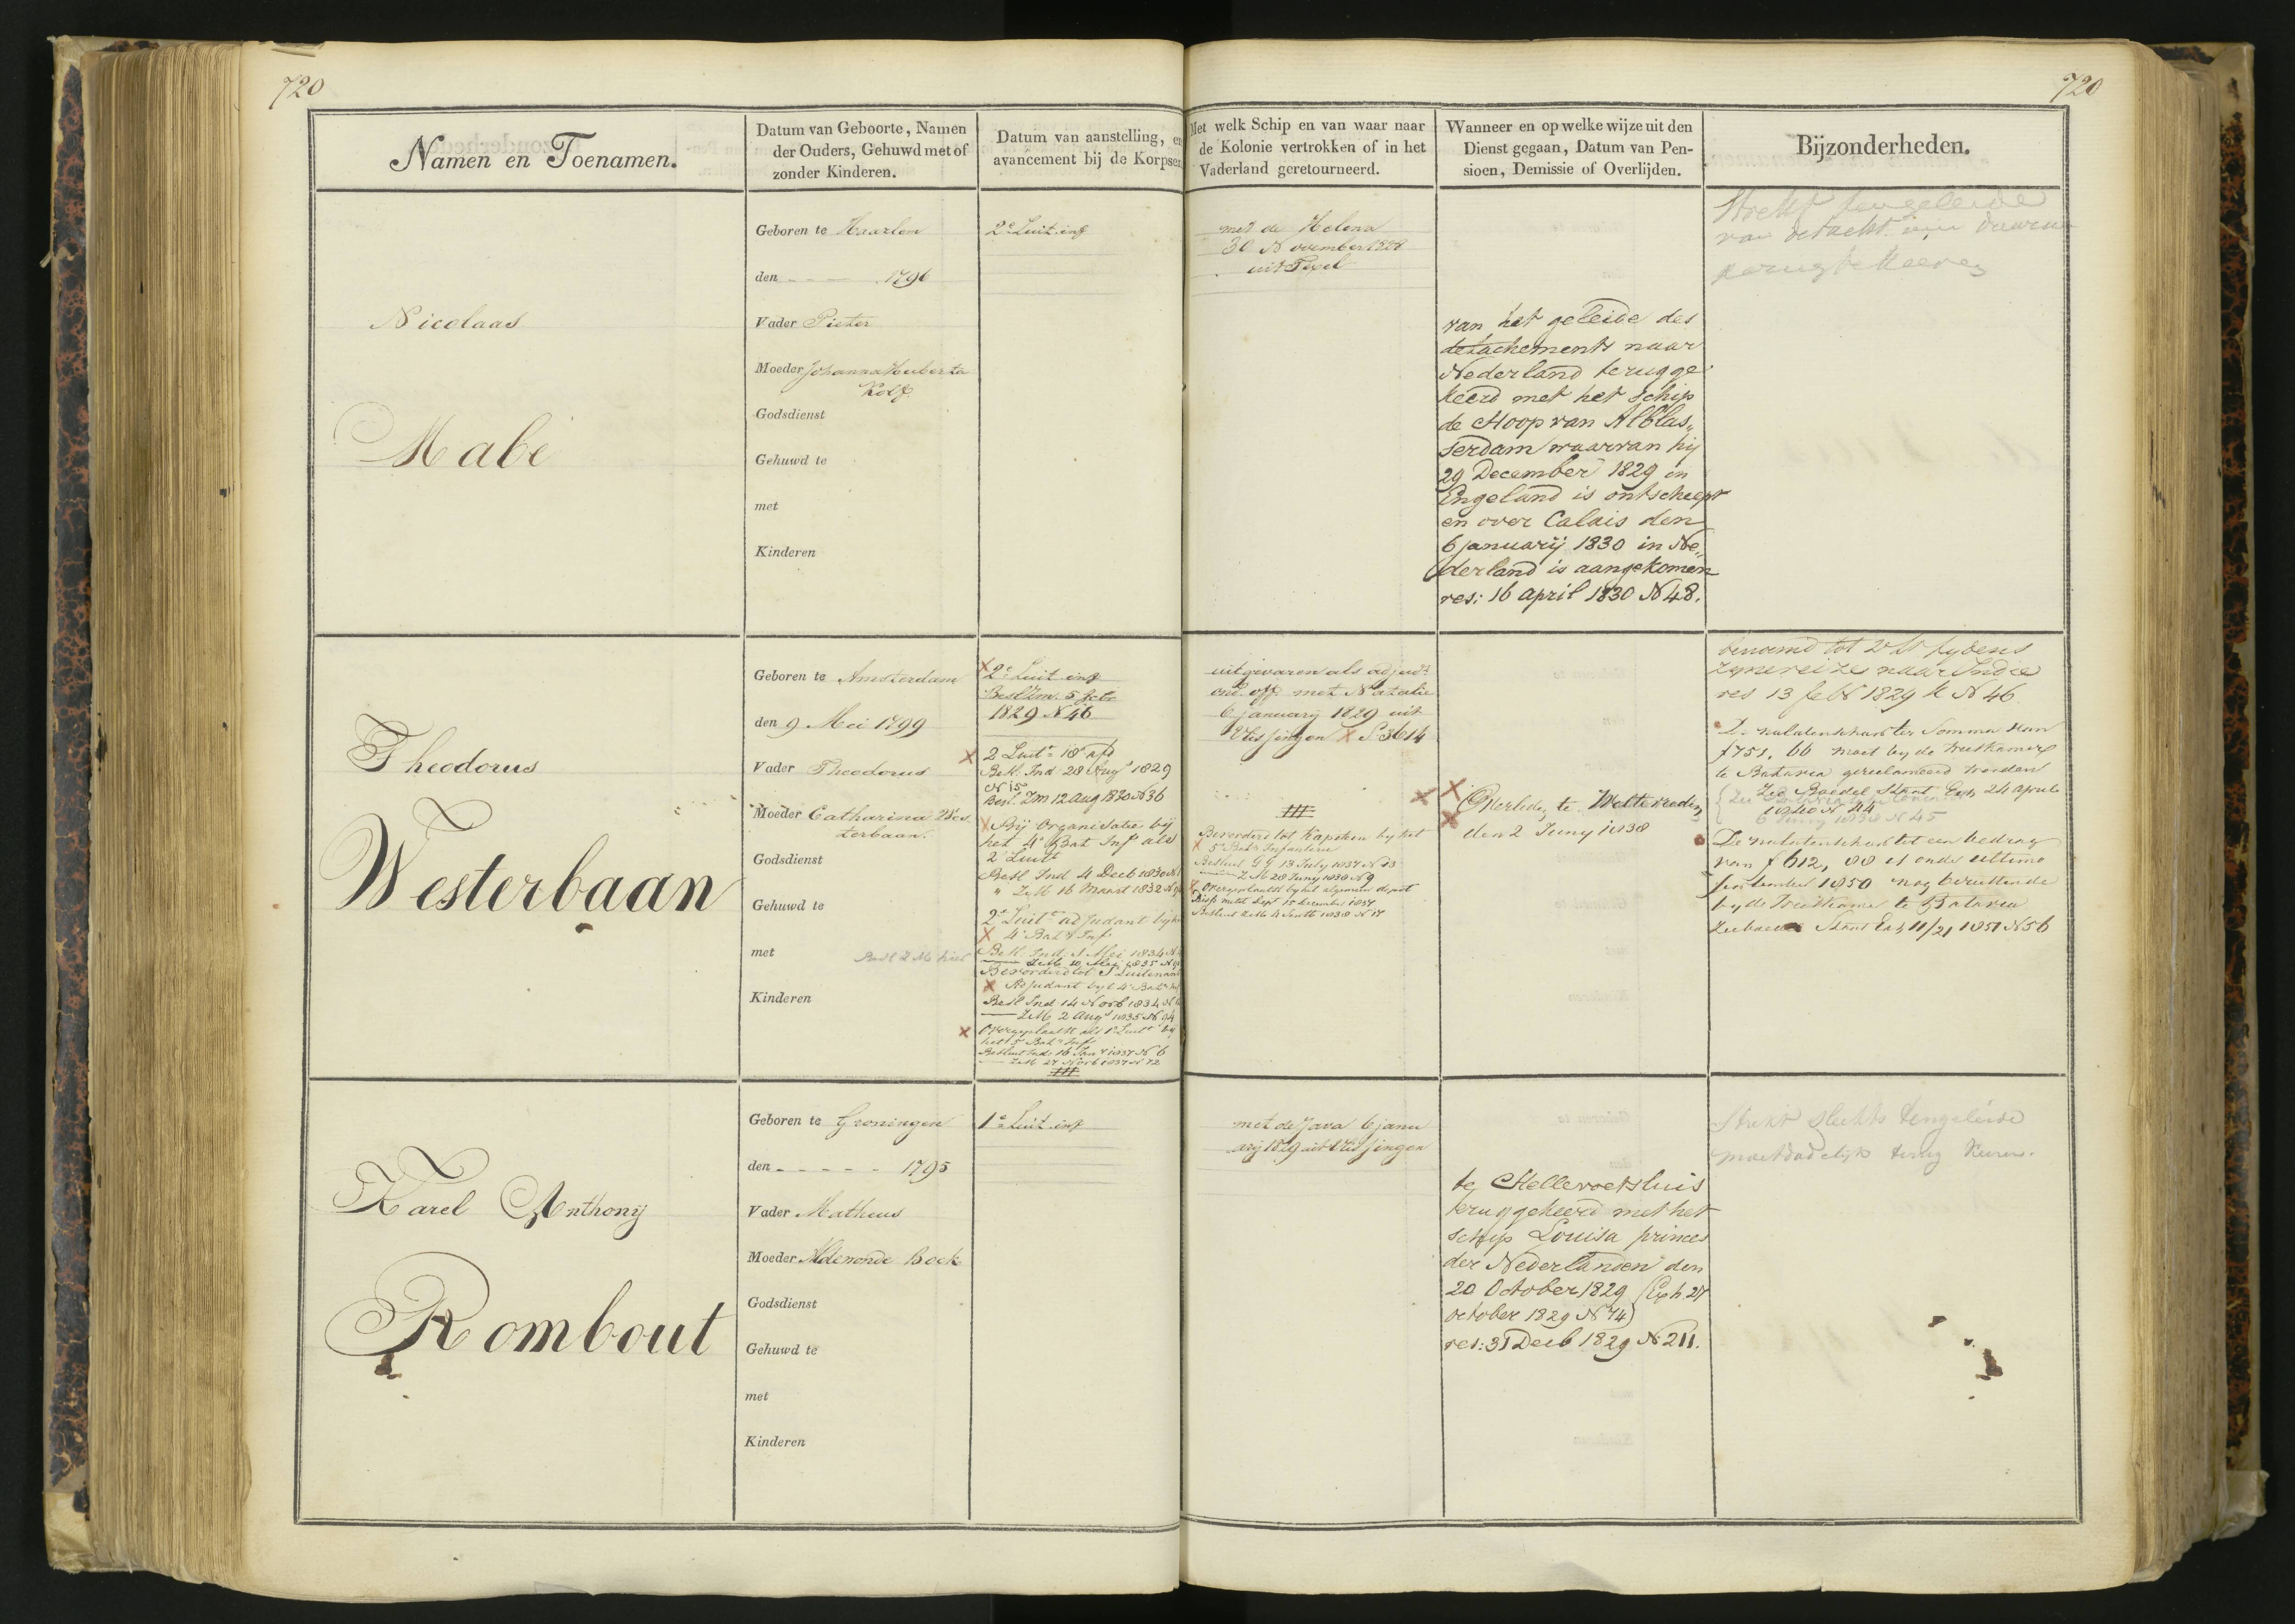 720
720
Namen en Toenamen.
Datum van Geboorte, Namen
der Ouders, Gehuwd met of
zonder Kinderen.
Datum van aanstelling, en
avancement bij de Korpsen
Met welk Schip en van waar naar
de Kolonie vertrokken of in het
Vaderland geretourneerd.
Wanneer en op welke wijze uit den
Dienst gegaan, Datum van Pen-
sioen, Demissie of Overlijden.
Bijzonderheden.
Nicolaas
Mabé
Geboren te Haarlem
den 1796
Vader Pieter
Moeder Johanna Huberta
Kolf
Godsdienst
Gehuwd te
met
Kinderen
2e Luit. inf
met de Helena
30 November 1828
uit Texel
van het geleide des
detachements naar
Nederland terugge
keerd met het schip
de Hoop van Alblas„
serdam waarvan hij
29 December 1829 in
Engeland is ontscheept
en over Calais den
6 januarij 1830 in Ne„
derland is aangekomen
res: 16 april 1830 N 48.
Strekt tengeleide
van detacht.
terug te keeren
Theodorus
Westerbaan
Geboren te Amsterdam
den 9 Mei 1799
Vader Theodorus
Moeder Catharina Wes
terbaan.
Godsdienst
Gehuwd te
met
Kinderen
2e Luit inf
Besl Zm. 5 febr
1829 N 46
2 Luit. 18e afd
Besl. Ind 28 Aug 1829
N 15
Besl. Zm 12 Aug 1830 N 36
Bij Organisatie bij
het 4e Bat Inf als
2e Luitt
Besl Ind 4 Decb 1830 N
" ZM 16 Maart 1832 N
2e Luitt adjudant bij h
4e Bat Inf
Besl. Ind. 1 Mei 1834 N
ZM 10 Mei 1835 N
Bevorderd tot 1e Luitenant
Adjudant by t 4e Batn Inf
Besl Ind 14 Novb 1834 N
ZM 2 Aug 1835 N 94
Overgeplaatst als 1e Luitt by
het 5e Batn Inf
Besluit Ind. 16 Jan 1837 N 6
ZM 27 Novb 1837 N 72
uitgevaren als adjudt
ond. off met Natalie
6 januarij 1829 uit
Vlissingen S. 3614
Bevorderd tot Kapitein by het
5e Batn Infanterie
Besluit GG 13 July 1837 N 13
ZM 28 Juny 1838 N 9
Overgeplaatst by het algemeen depot
Besluit ZM
Overleden te Weltevreden
den 2 Juny 1838
benoemd tot 2e Lt tydens
zyne reize naar Indie
res 13 feb 1829 N 46
De nalatenschap ter Somma van
f 751, 66 moet by de weeskamer
te Batavia gereclameerd worden
Zie Boedel Staat Exh 24 april
1840 N 44
De nalatenschap tot een bedrag
van f 612, 88 is onder ultimo
september 1850 nog berustende
by de Weeskamer te Batavia
Staat Exh 11/21 1851 N 56
Karel Anthonij
Rombout
Geboren te Groningen
den 1795
Vader Matheus
Moeder Aldenonde Bock
Godsdienst
Gehuwd te
met
Kinderen
1e Luit. inf
met de Java 6 janu
arij 1829 uit Vlissingen
te Hellevoetsluis
teruggekeerd met het
schip Louisa princes
der Nederlanden den
20 October 1829 (Exh. 27
October 1829 N 74)
res: 31 Decb 1829 N 211.
Strekt slechts tengeleide
moet dadelijk terug keeren.